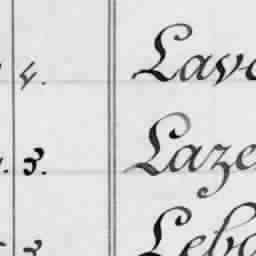 4. Lav
3. Laze
3 Leb